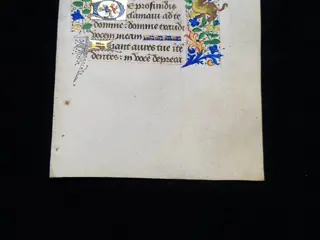 e profundis
clamaui ad te
domine: domine exaudi
vocem meam
iant aures tue ite
dentes: in vocē depreca